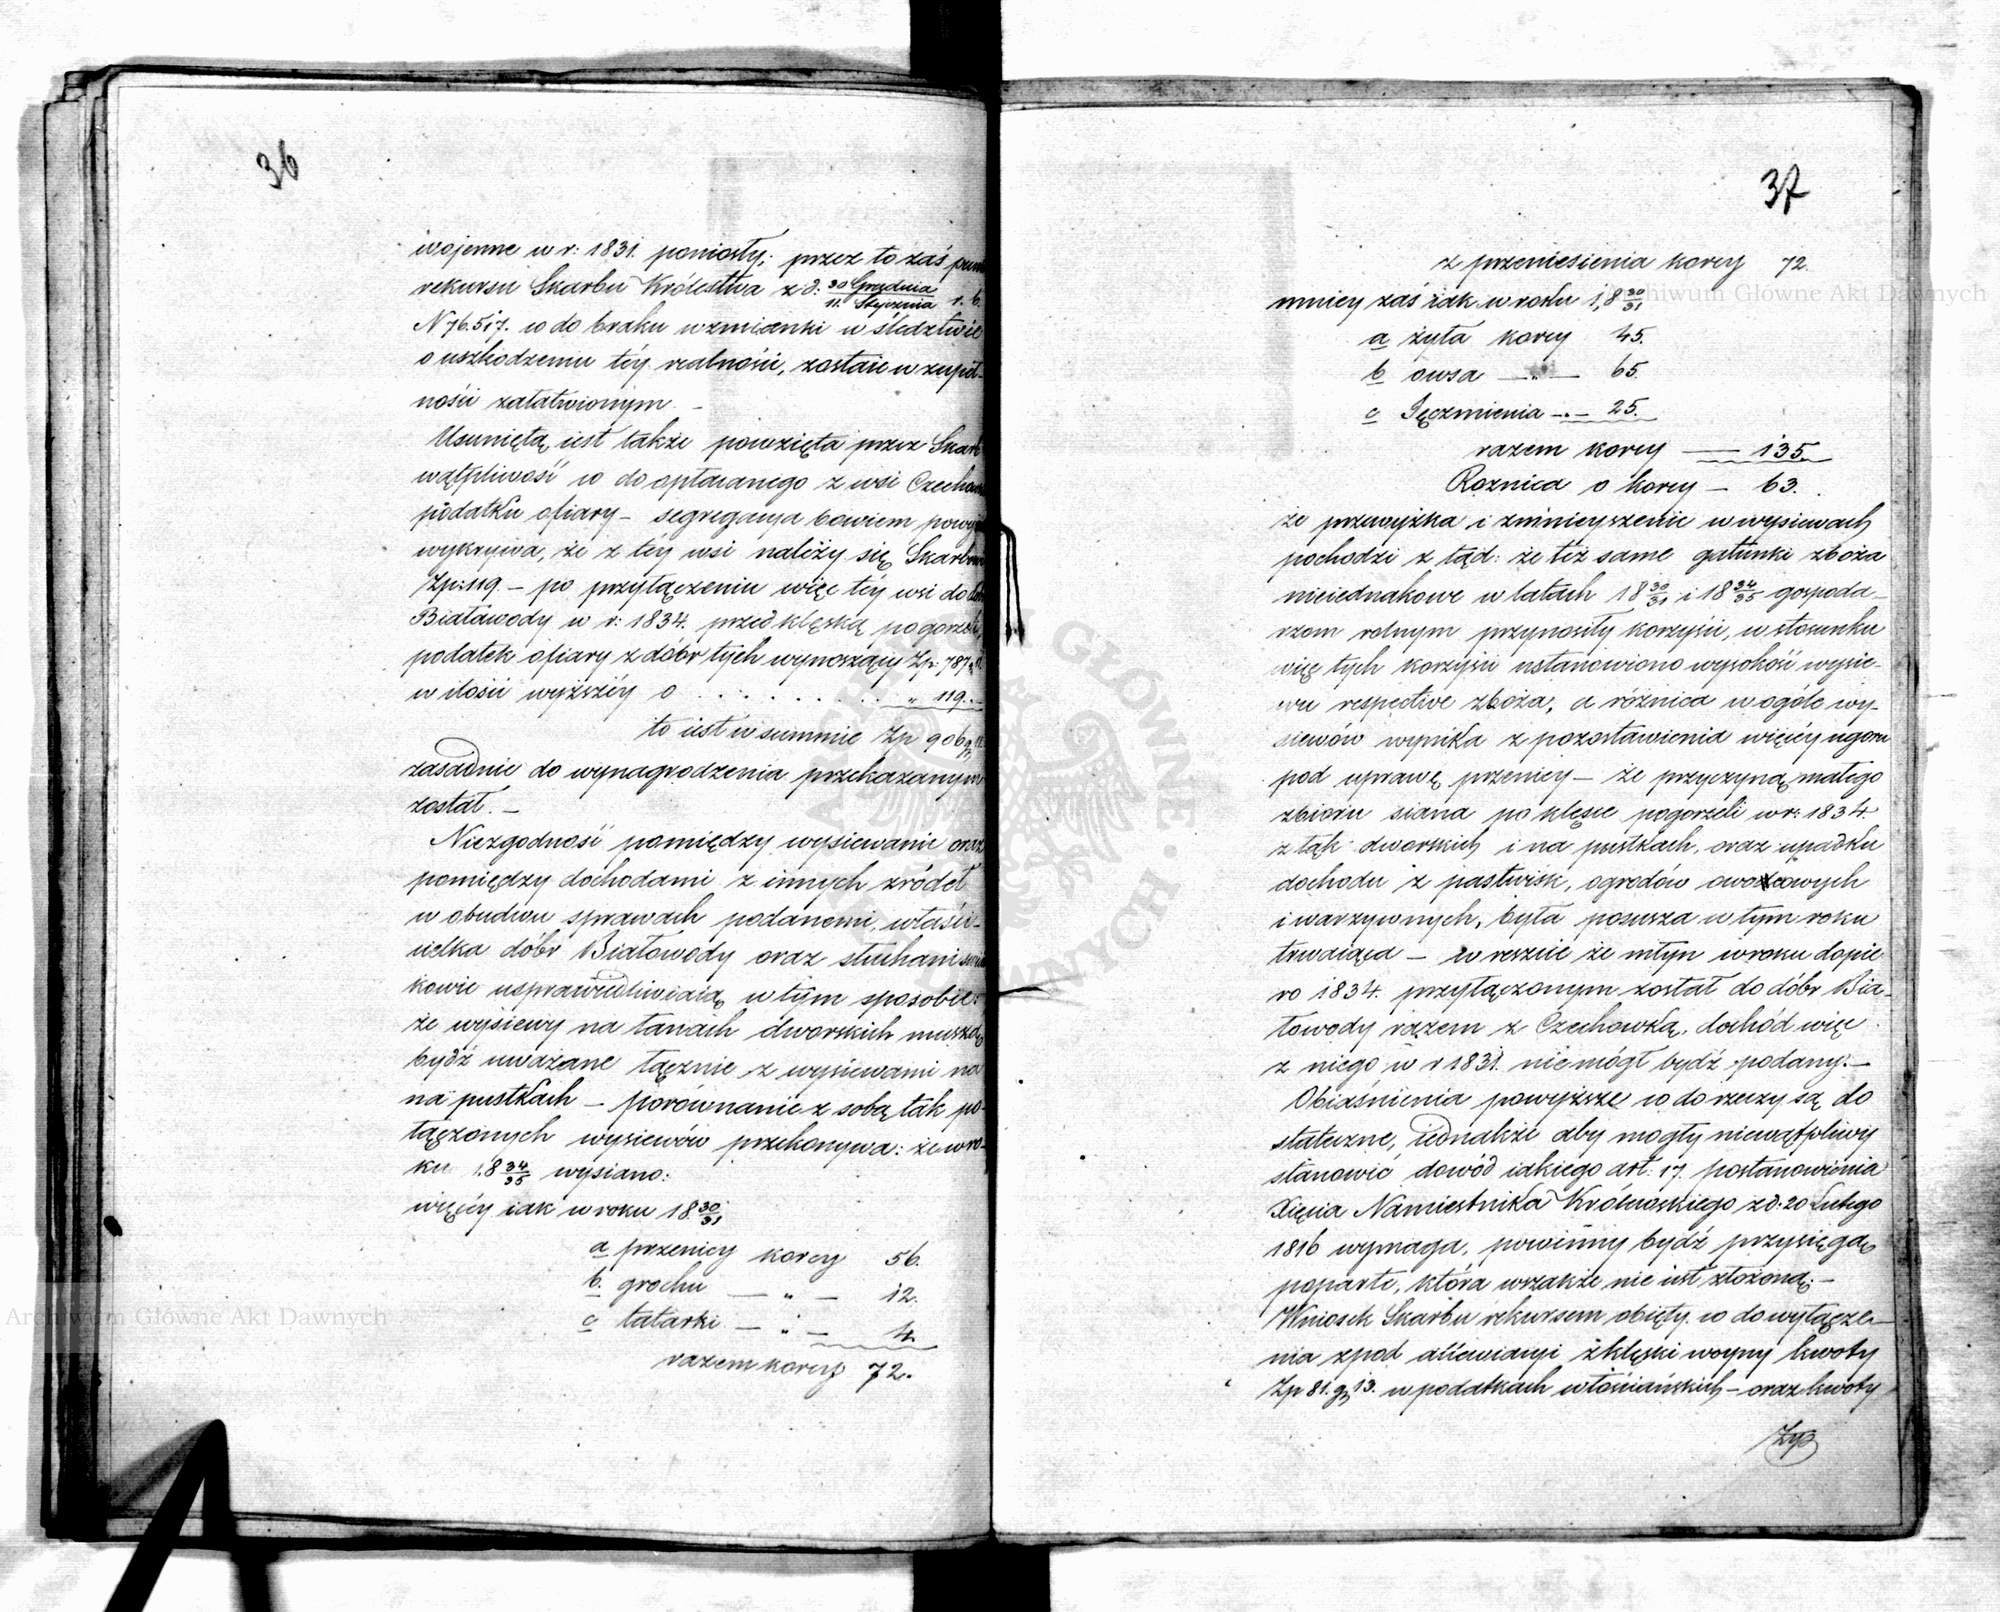 36
wojenne w r: 1831. poniosły; przez to zaś
rekursu Skarbu Królestwa z d: 30 Grudnia / 11. Stycznia r. b.
N 76.517. co do braku wzmianki w śledztwie
o uszkodzeniu téy realności, zostaie w zupeł-
ności załatwionym. –
Usuniętą iest także powzięta przez Skarb
wątpliwość co do opłacanego z wsi Czechow
podatku ofiary – segregacya bowiem
wykrywa, że z téy wsi należy się Skarbowi
Zp: 119. – po przyłączeniu więc téy wsi do dóbr
Białawody w r: 1834. przed klęską pogorzeli,
podatek ofiary z dóbr tych wynoszący Zp: 787
w ilości wyższéy o . . . . . . . . " 119. –
to iest w summie Zp 906 g
zasadnie do wynagrodzenia przekazanym
został. –
Niezgodność pomiędzy wysiewami oraz
pomiędzy dochodami z innych źródeł
w obudwu sprawach podanemi, właści-
cielka dóbr Białowody oraz słuchani świad
kowie usprawiedliwiaią w tym sposobie:
że wysiewy na łanach dworskich muszą
bydź uważane łącznie z wysiewami na
na pustkach – porównanie z sobą tak po-
łączonych wysiewów przekonywa: że w ro-
ku 18 34/35 wysiano:
więcéy iak w roku 18 30/31
a pszenicy korcy 56.
b. grochu — " — 12.
c tatarki — " — 4.
razem korcy 72.
37
z przeniesienia korcy 72.
mniey zaś iak w roku 18 30/31
a żyta korcy 45.
b owsa — " — 65.
c Jęczmienia — " — 25.
razem korcy — 135.
Roznica o korcy — 63.
że przewyżka i zmnieyszenie w wysiewach
pochodzi z tąd: że też same gatunki zboża
nieiednakowe w latach 18 30/31 i 18 34/35 gospoda-
rzom rolnym przynosiły korzyści, w stosunku
więc tych korzyści ustanowiono wysokość wysie-
wu respective zboża, a różnica w ogóle wy-
siewów wynika z pozostawienia więcéy ugoru
pod uprawę pszenicy – że przyczyną małego
zbioru siana po klęsce pogorzeli w r: 1834.
z łąk dworskich i na pustkach, oraz upadku
dochodu z pastwisk, ogrodów owocowych
i warzywnych, była posusza w tym roku
trwaiąca – w reszcie że młyn w roku dopie
ro 1834. przyłączonym został do dóbr Bia-
łowody razem z Czechowką, dochód więc
z niego w r 1831. nie mógł bydź podany. –
Obiaśnienia powyższe co do rzeczy są do
stateczne, iednakże aby mogły niewątpliwy
stanowić dowód iakiego art: 17. postanowienia
Xięcia Namiestnika Królewskiego z d: 20 Lutego
1816 wymaga, powinny bydź przysięgą
poparte, która wszakże nie iest złożoną. –
Wniosek Skarbu rekursem obięty co do wyłącze-
nia zpod allewiacyi z klęski woyny kwoty
Zp 81. g 13. w podatkach włościańskich – oraz kwoty
Zp
Archiwum Główne Akt Dawnych
Archiwum Główne Akt Dawnych